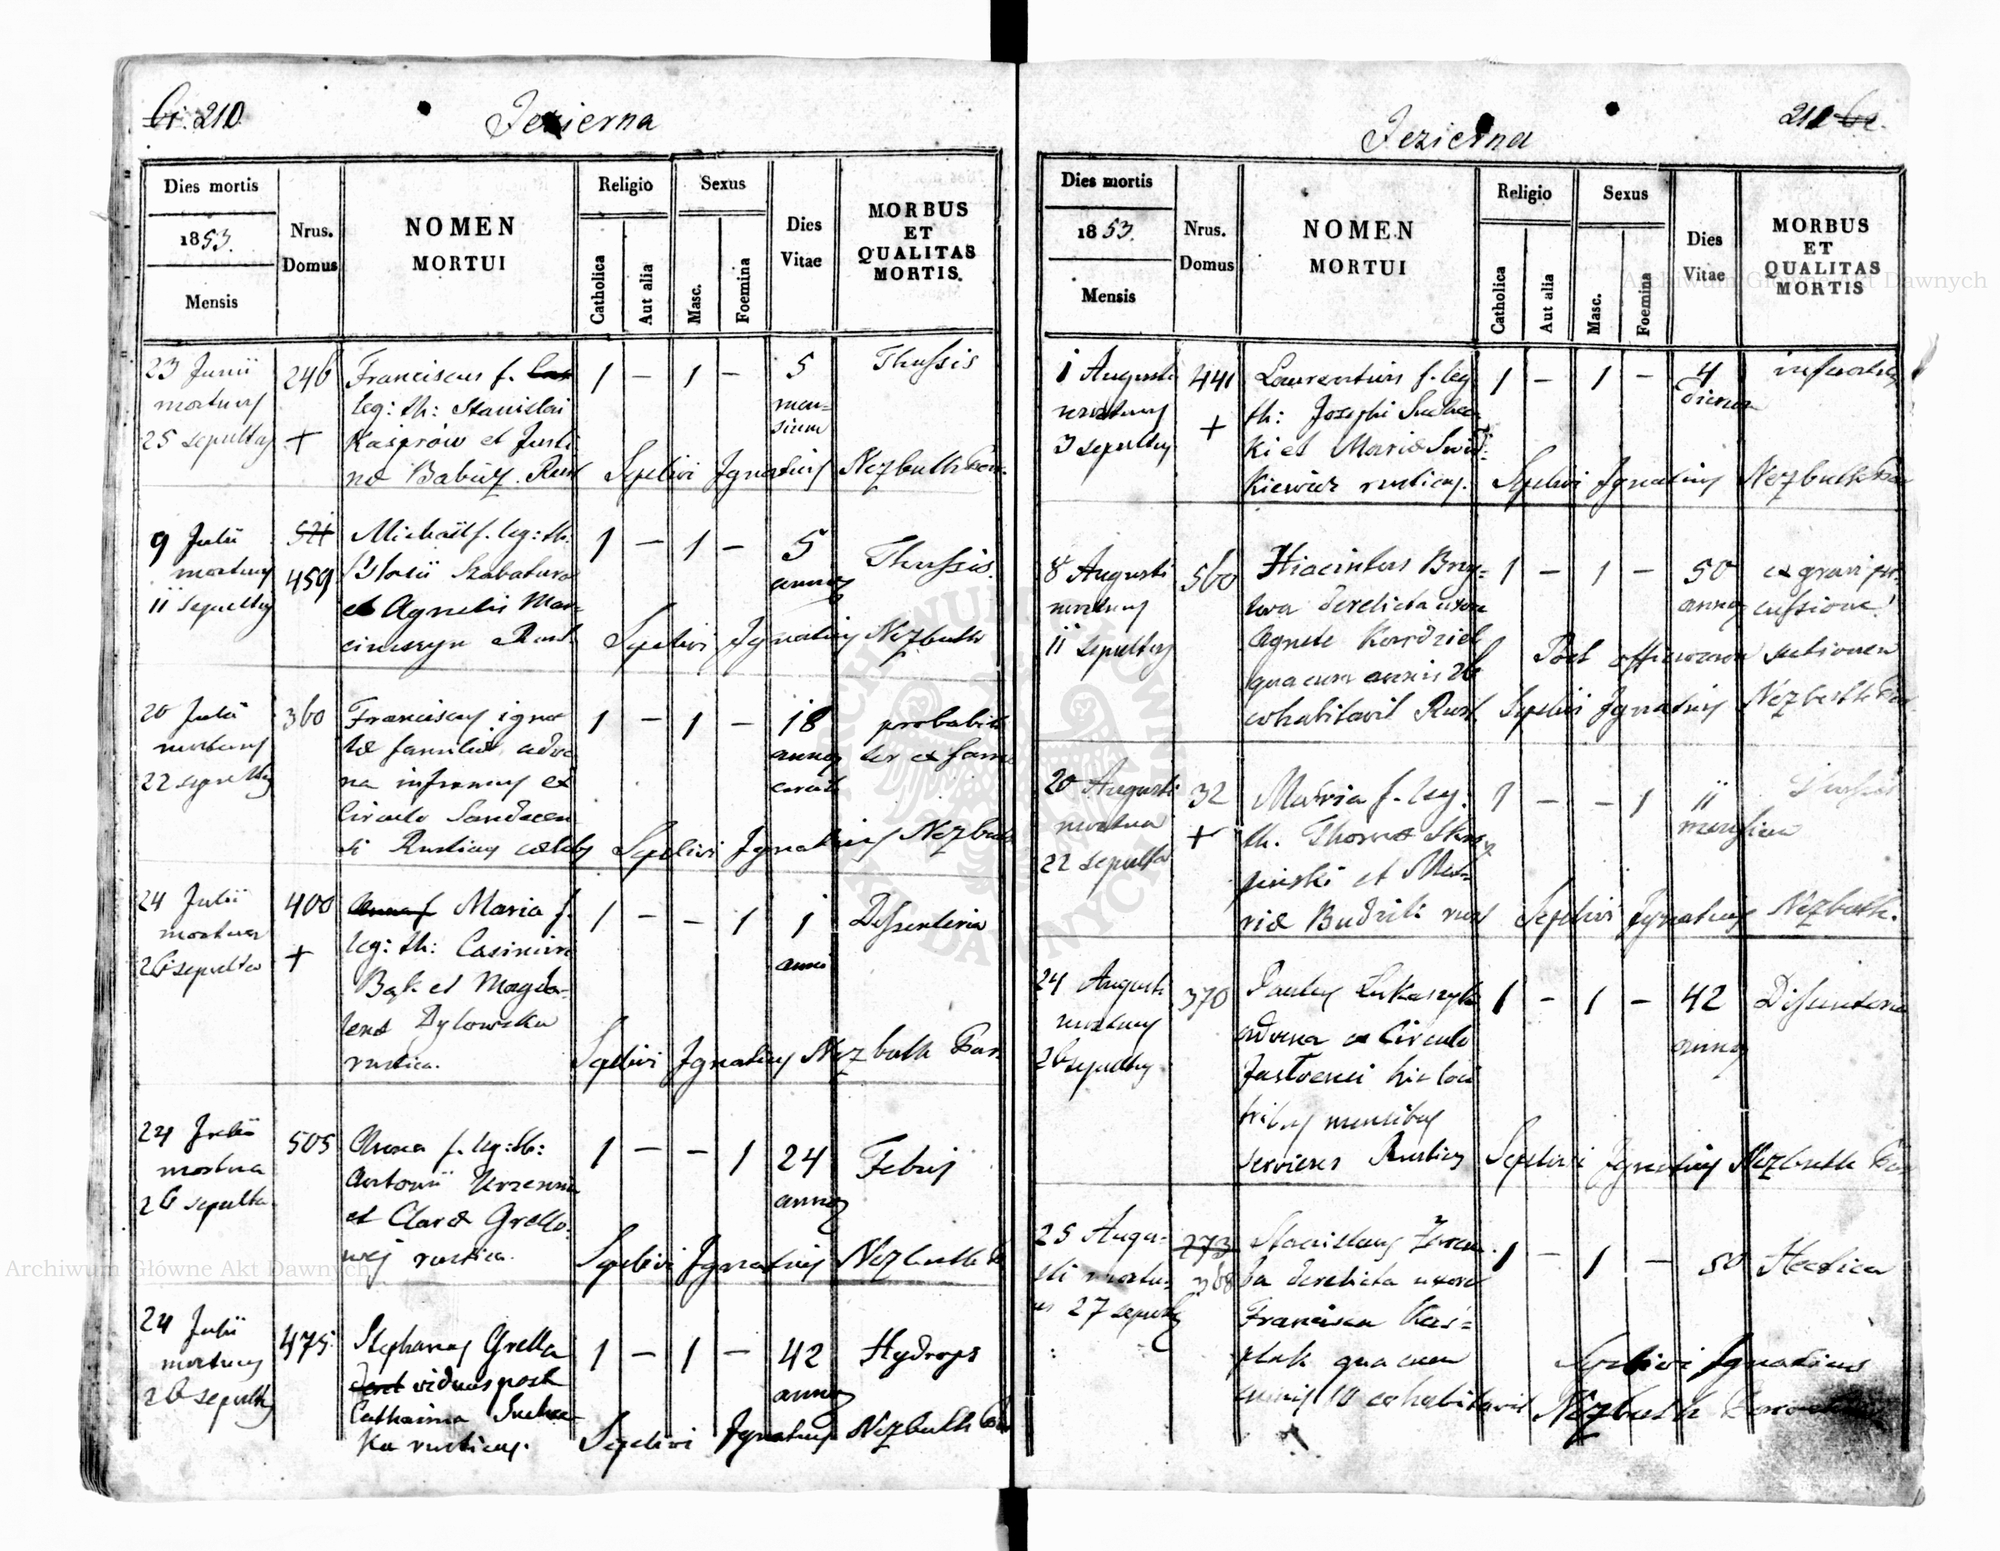 210.
Jezierna
Dies mortis
1853.
Mensis
Nrus.
Domus
NOMEN
MORTUI
Religio
Catholica
Aut alia
Sexus
Masc.
Foemina
Dies
Vitae
MORBUS
ET
QUALITAS
MORTIS.
23 Junii
mortuus
25 sepultus
246
+
Franciscus f.
leg: th: Stanislai
Kasprów et Justi
næ Babusz. Rust
1 — 1 —
5
men=
sium
Thussis
Sepelivi Ignatius Nezbuth Par.
9 Julii
mortuus
11 sepultus
459
Michaël f. leg: th.
Blasii Szabatura
et Agnetis Mar
1 — 1 —
5
annor
Thussis.
Sepelivi Ignatius Nezbuth
20 Julii
mortuus
22 sepultus
360
Franciscus igno
tæ familiæ adve
na infirmus ex
Circulo Sandecen
si Rusticus cælebs
1 — 1 —
18
annor
circiter
probabili
ter ex fame
Sepelivi Ignatius Nezbuth
24 Julii
mortua
26 sepulta
400
+
Maria f.
leg: th: Casimiri
Bąk et Magda-
lenæ Dylowska
rustica.
1 — — 1
1
anni
Dissenteria
Sepelivi Ignatius Nezbuth Par
24 Julii
mortua
26 sepulta
505
Anna f. leg: th:
Antonii
et Claræ Grello-
wej rustica.
1 — — 1
24
annor
Febris
Sepelivi Ignatius Nezbuth
24 Julii
mortuus
26 sepultus
475.
Stephanus Grella
viduus post
Catharina Suchec
ka rusticus.
1 — 1 —
42
annor
Hydrops
Sepelivi Ignatius Nezbuth Par
Jezierna
211
Dies mortis
1853.
Mensis
Nrus.
Domus
NOMEN
MORTUI
Religio
Catholica
Aut alia
Sexus
Masc.
Foemina
Dies
Vitae
MORBUS
ET
QUALITAS
MORTIS
1 Augusti
mortuus
3 sepultus
441
+
Laurentius f. leg
th: Josephi Suchec
ki et Mariæ Swid=
kiewicz rusticus.
1 — 1 —
4
dierum
Sepelivi Ignatius Nezbuth Par
8 Augusti
mortuus
11 sepultus
560
Hiacintus Bry=
derelicta uxore
Agnete
quacum annis 26
cohabitavit Rust
1 — 1 —
50
annor
ex gravi per
cussione!
Post sectionem
Sepelivi Ignatius Nezbuth Par
20 Augusti
mortua
22 sepulta
32
+
Maria f. leg:
th. Thomæ Skrzy
pinski et Ma=
riæ Budzik rust
1 — — 1
11
mensium
Thussis
Sepelivi Ignatius Nezbuth.
24 Augusti
mortuus
26 sepultus
370
Paulus Lukaszyk
advena ex Circulo
Jaslensi hic loci
tribus mensibus
serviens Rusticus
1 — 1 —
42
annor
Dissenteria
Sepelivi Ignatius Nezbuth Par
25 Augu-
sti mortu-
us 27 sepultus
368
Stanislaus
derelicta uxore
Francisca Kas=
quacum
annis 10 cohabitavit
1 — 1 —
50
Hectica
Sepelivi Ignatius
Nezbuth
Archiwum Główne Akt Dawnych
Archiwum Główne Akt Dawnych
ARCHIWUM GŁÓWNE AKT DAWNYCH